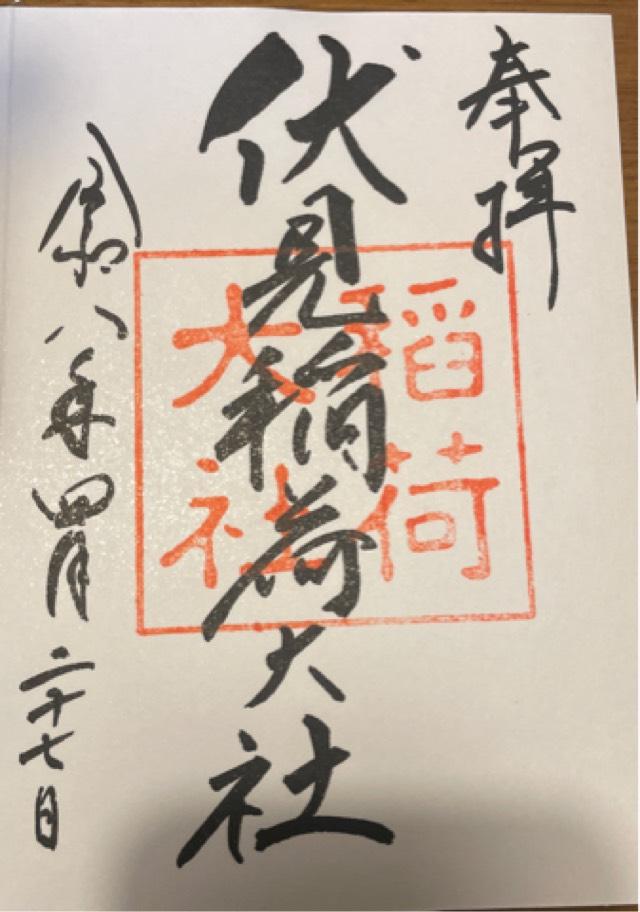 奉拝
伏見稲荷大社
稲荷
大社
令和八年四月二十七日